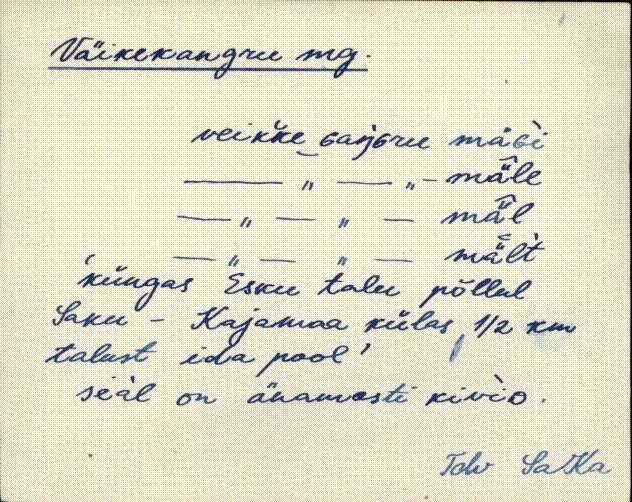 Väikekangru mg.
veikke ɢaŋɢru mäɢi
— „ — „ – mäle
— „ — „ — mäl
— „ — „ — mält
'küngas Esku talu põllul
Saku - Kajamaa külas, 1/2 km
talust ida pool'
seäl on änamasti kivìo.
SaKa